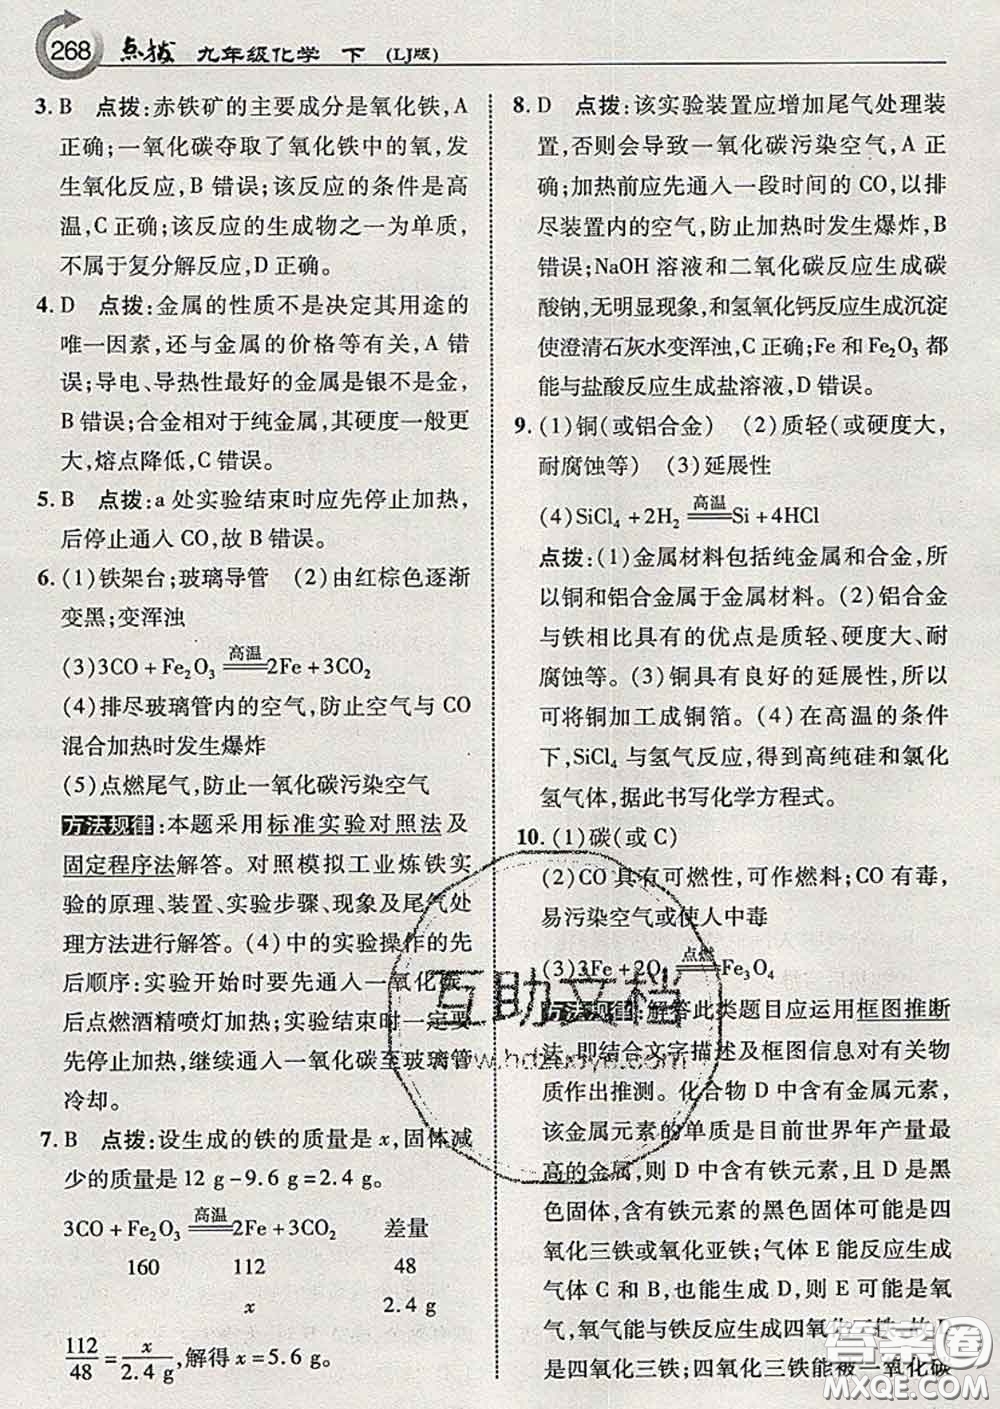 268 点拨 九年级化学 下 (LJ版)
3. B 点拨:赤铁矿的主要成分是氧化铁,A
正确;一氧化碳夺取了氧化铁中的氧,发
生氧化反应,B 错误;该反应的条件是高
温,C 正确;该反应的生成物之一为单质,
不属于复分解反应,D 正确。
4. D 点拨:金属的性质不是决定其用途的
唯一因素,还与金属的价格等有关,A 错
误;导电、导热性最好的金属是银不是金,
B 错误;合金相对于纯金属,其硬度一般更
大,熔点降低,C 错误。
5. B 点拨:a 处实验结束时应先停止加热,
后停止通入 CO,故 B 错误。
6. (1)铁架台;玻璃导管 (2)由红棕色逐渐
变黑;变浑浊
(3)3CO + Fe₂O₃ 高温══ 2Fe + 3CO₂
(4)排尽玻璃管内的空气,防止空气与 CO
混合加热时发生爆炸
(5)点燃尾气,防止一氧化碳污染空气
方法规律:本题采用标准实验对照法及
固定程序法解答。对照模拟工业炼铁实
验的原理、装置、实验步骤、现象及尾气处
理方法进行解答。(4)中的实验操作的先
后顺序:实验开始时要先通入一氧化碳,
后点燃酒精喷灯加热;实验结束时一定要
先停止加热,继续通入一氧化碳至玻璃管
冷却。
7. B 点拨:设生成的铁的质量是 x,固体减
少的质量是 12 g - 9.6 g = 2.4 g。
3CO + Fe₂O₃ 高温══ 2Fe + 3CO₂ 差量
160 112 48
x 2.4 g
112/48 = x/2.4 g,解得 x = 5.6 g。
8. D 点拨:该实验装置应增加尾气处理装
置,否则会导致一氧化碳污染空气,A 正
确;加热前应先通入一段时间的 CO,以排
尽装置内的空气,防止加热时发生爆炸,B
错误;NaOH 溶液和二氧化碳反应生成碳
酸钠,无明显现象,和氢氧化钙反应生成沉淀
使澄清石灰水变浑浊,C 正确;Fe 和 Fe₂O₃ 都
能与盐酸反应生成盐溶液,D 错误。
9. (1)铜(或铝合金) (2)质轻(或硬度大,
耐腐蚀等) (3)延展性
(4)SiCl₄ + 2H₂ 高温══ Si + 4HCl
点拨:(1)金属材料包括纯金属和合金,所
以铜和铝合金属于金属材料。(2)铝合金
与铁相比具有的优点是质轻、硬度大、耐
腐蚀等。(3)铜具有良好的延展性,所以
可将铜加工成铜箔。(4)在高温的条件
下,SiCl₄ 与氢气反应,得到高纯硅和氯化
氢气体,据此书写化学方程式。
10. (1)碳(或 C)
(2)CO 具有可燃性,可作燃料;CO 有毒,
易污染空气或使人中毒
(3)3Fe + 2O₂ 点燃══ Fe₃O₄
方法规律:解答此类题目应运用框图推断
法,即结合文字描述及框图信息对有关物
质作出推测。化合物 D 中含有金属元素,
该金属元素的单质是目前世界年产量最
高的金属,则 D 中含有铁元素,D 是黑色
固体,含有铁元素的黑色固体可能是四
氧化三铁或氧化亚铁;气体 E 能反应生成
气体 C 和 B,也能生成 D,则 E 可能是氧
气,氧气能与铁反应生成四氧化三铁,故 D
是四氧化三铁;四氧化三铁能被一氧化碳
互助文档
www.hdzuoye.com
答案圈
MXQE.COM